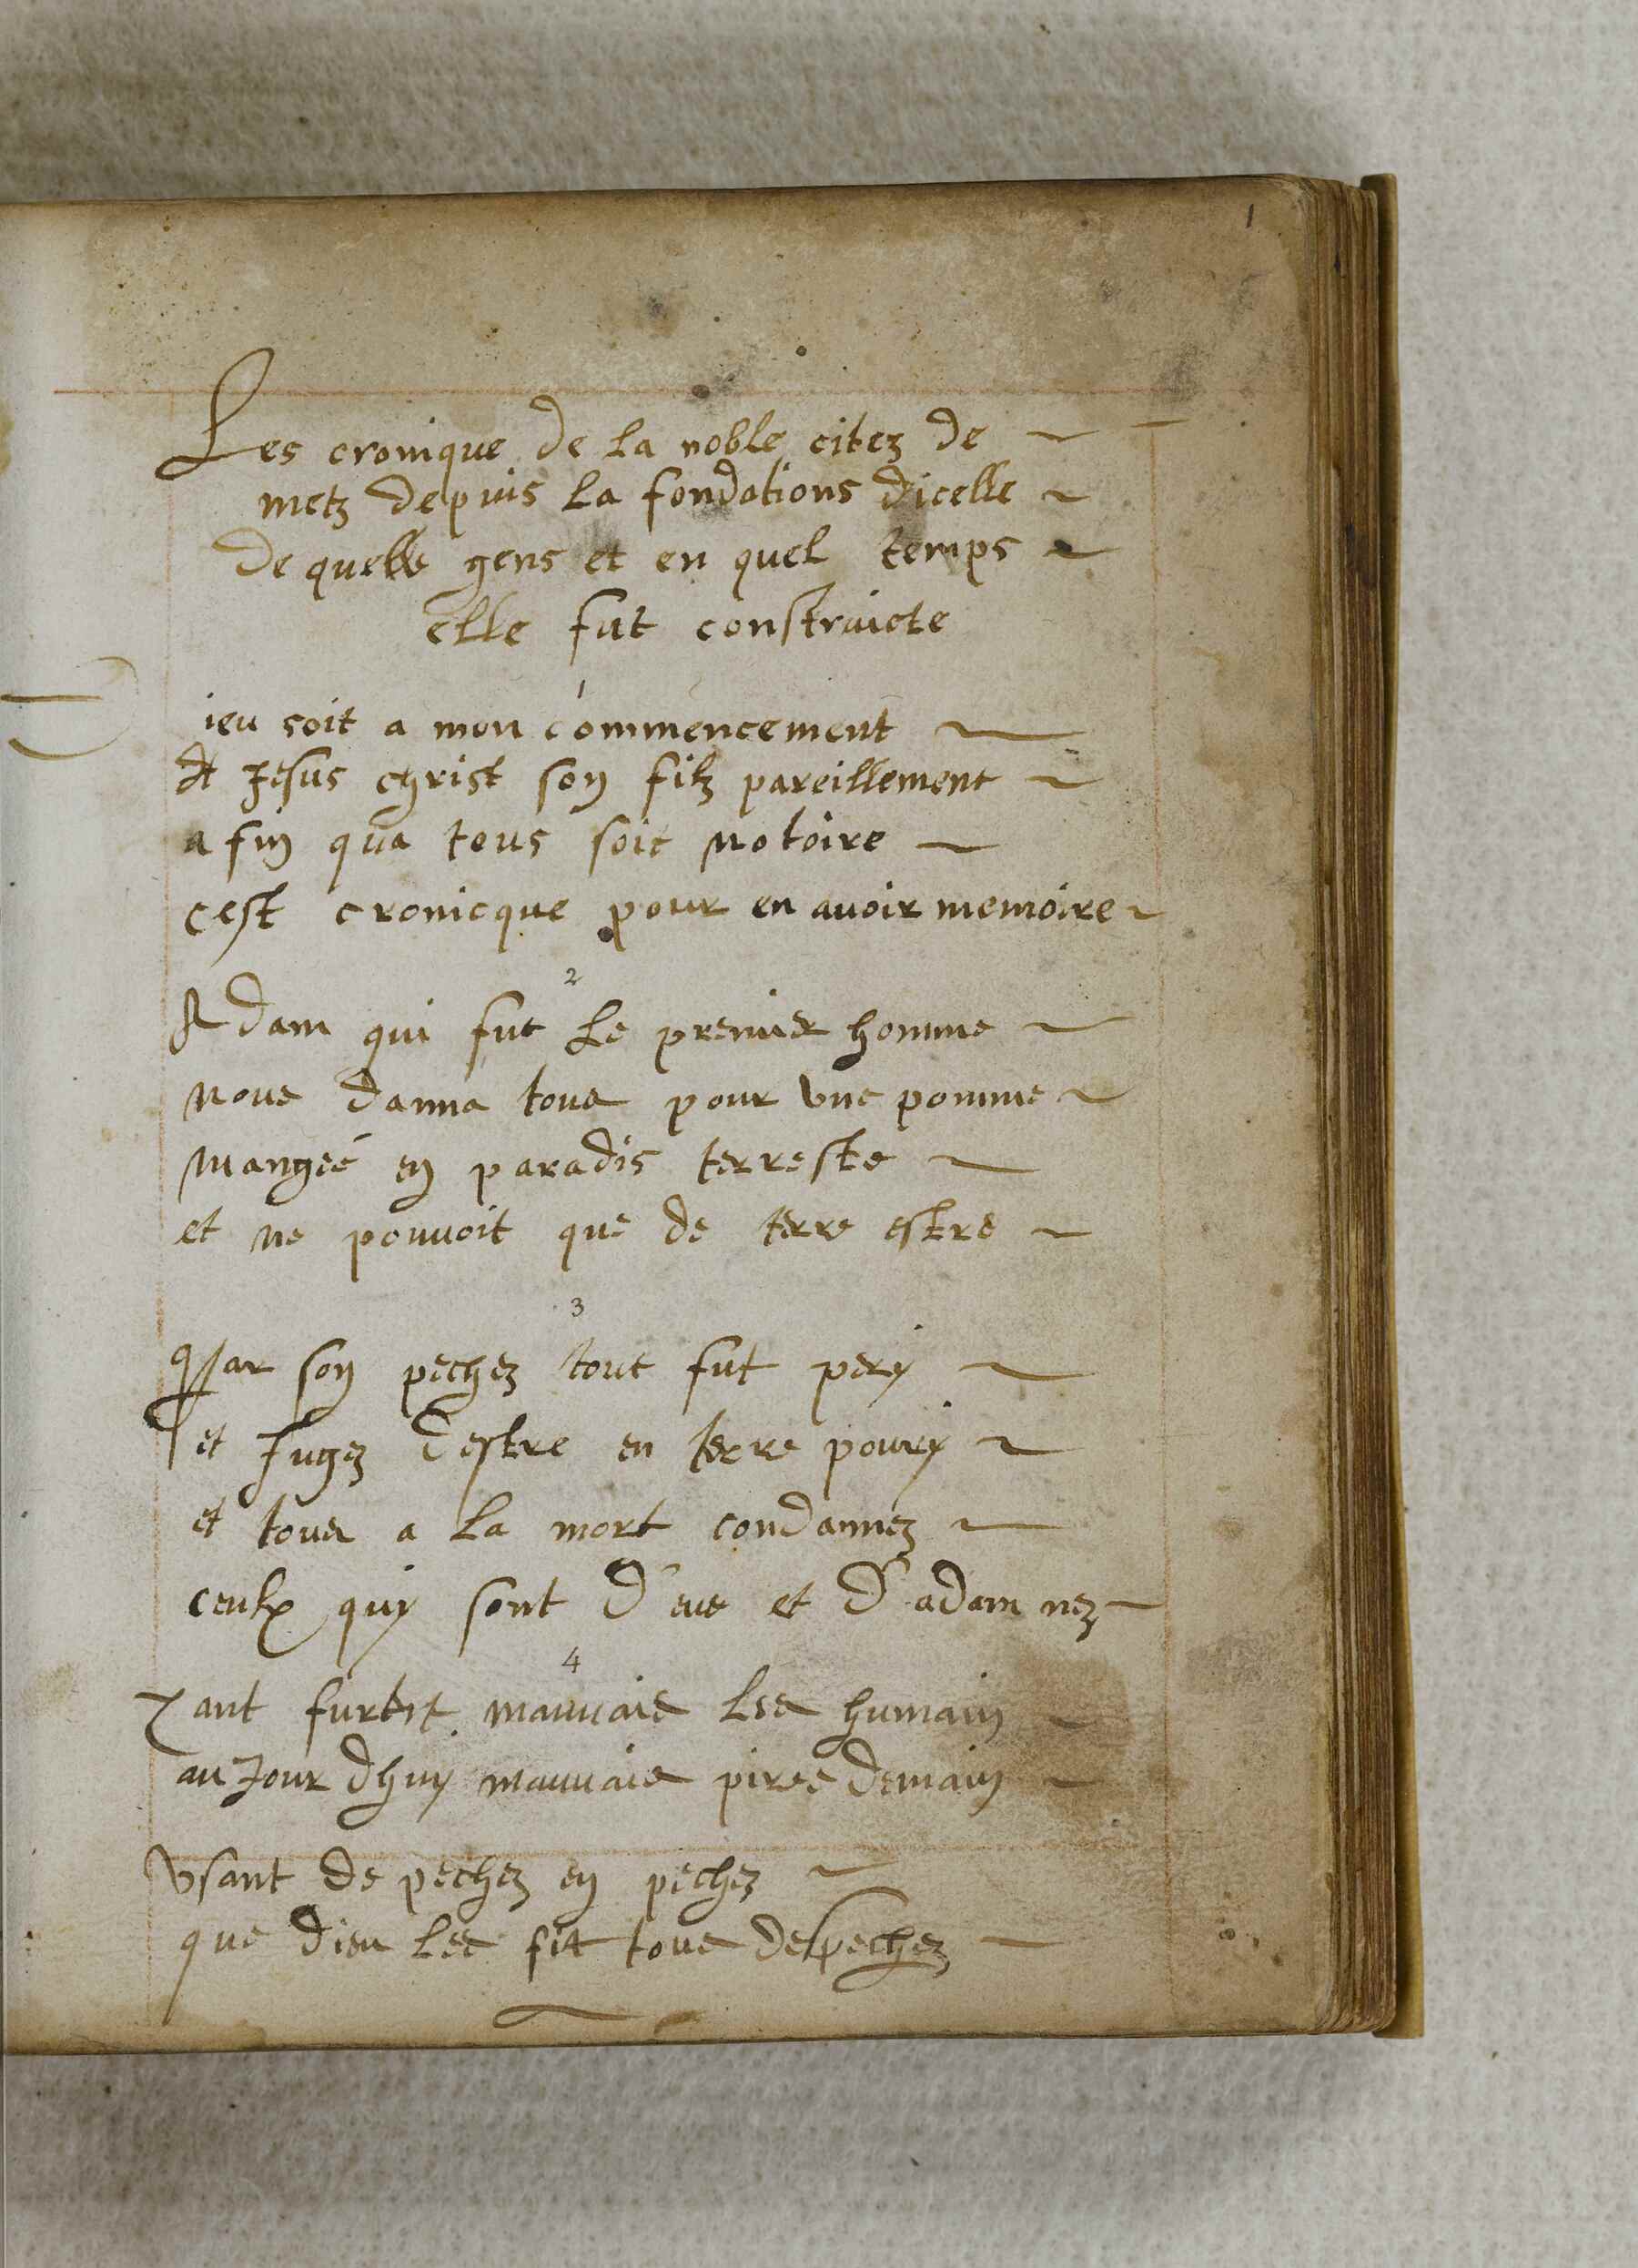 1
Les cronique de la noble citez de
metz depuis la fondations dicelle
de quelle gens et en quel temps
elle fut construicte
1
ieu soit a mon commencement
Et Jesus christ son filz pareillement
a fin qua tous soit notoire
cest cronicque pour en avoir memoire
2
Adam qui fut le premier homme
nous danna tous pour une pomme
mangée en paradis terreste
et ne pouvoit que de terre estre
3
Par son pechez tout fut pery
et Jugez d'estre en terre poury
et tous a la mort condannez
ceulx quy sont d'eve et d'adam nez
4
Tant furent mauvais les humain
au Jour dhuy mauvais pires demain
Usant de pechez en pechez
que dieu les fit tous despechez